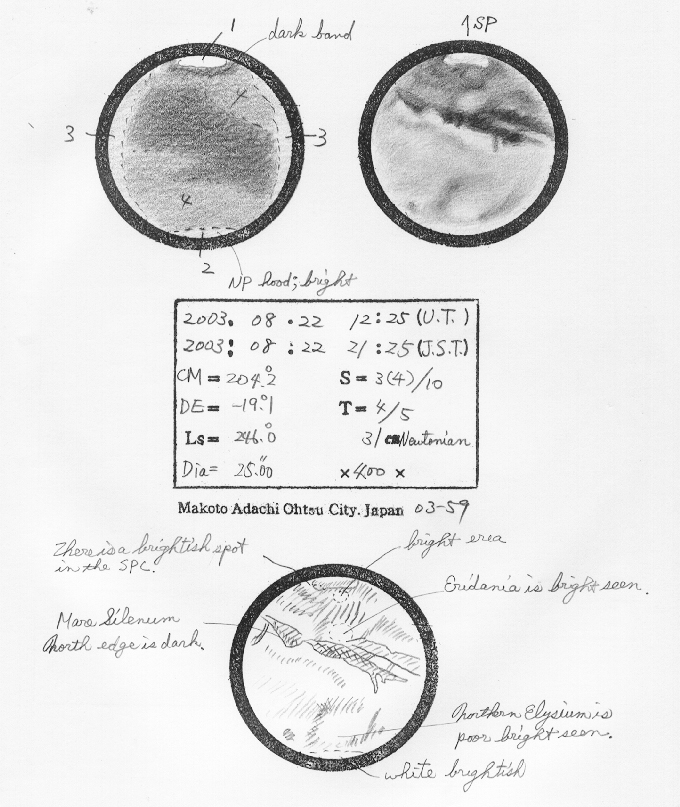 1
dark band
↑SP
3
4
3
4
2
NP hood; bright
2003. 08 . 22 12:25 (U.T.)
2003: 08 : 22 21:25 (J.S.T.)
CM = 204.°2 S = 3(4)/10
DE = -19.°1 T = 4/5
Ls = 246.°0 31cm Newtonian
Dia= 25."00 ×400 ×
Makoto Adachi Ohtsu City. Japan 03-59
There is a brightish spot
in the SPC.
bright erea
Eridania is bright seen.
Mare Silenum
North edge is dark.
Northern Elysium is
poor bright seen.
white brightish